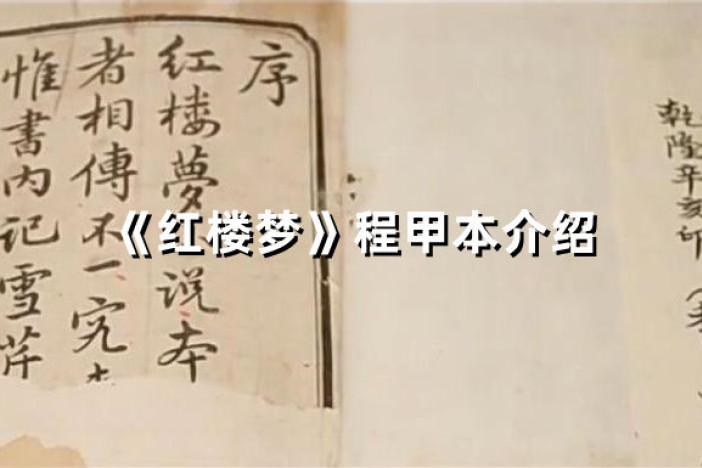 《红楼梦》程甲本介绍
乾隆辛亥
序
红楼夢说本
者相傳不一究
惟書内记雪芹